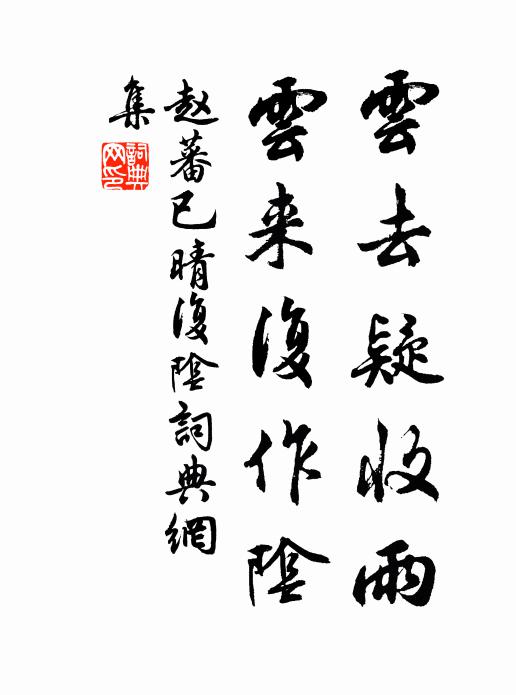 雲去疑收雨
雲来復作陰
赵蕃已晴復陰詞典網
集
詞典
网印